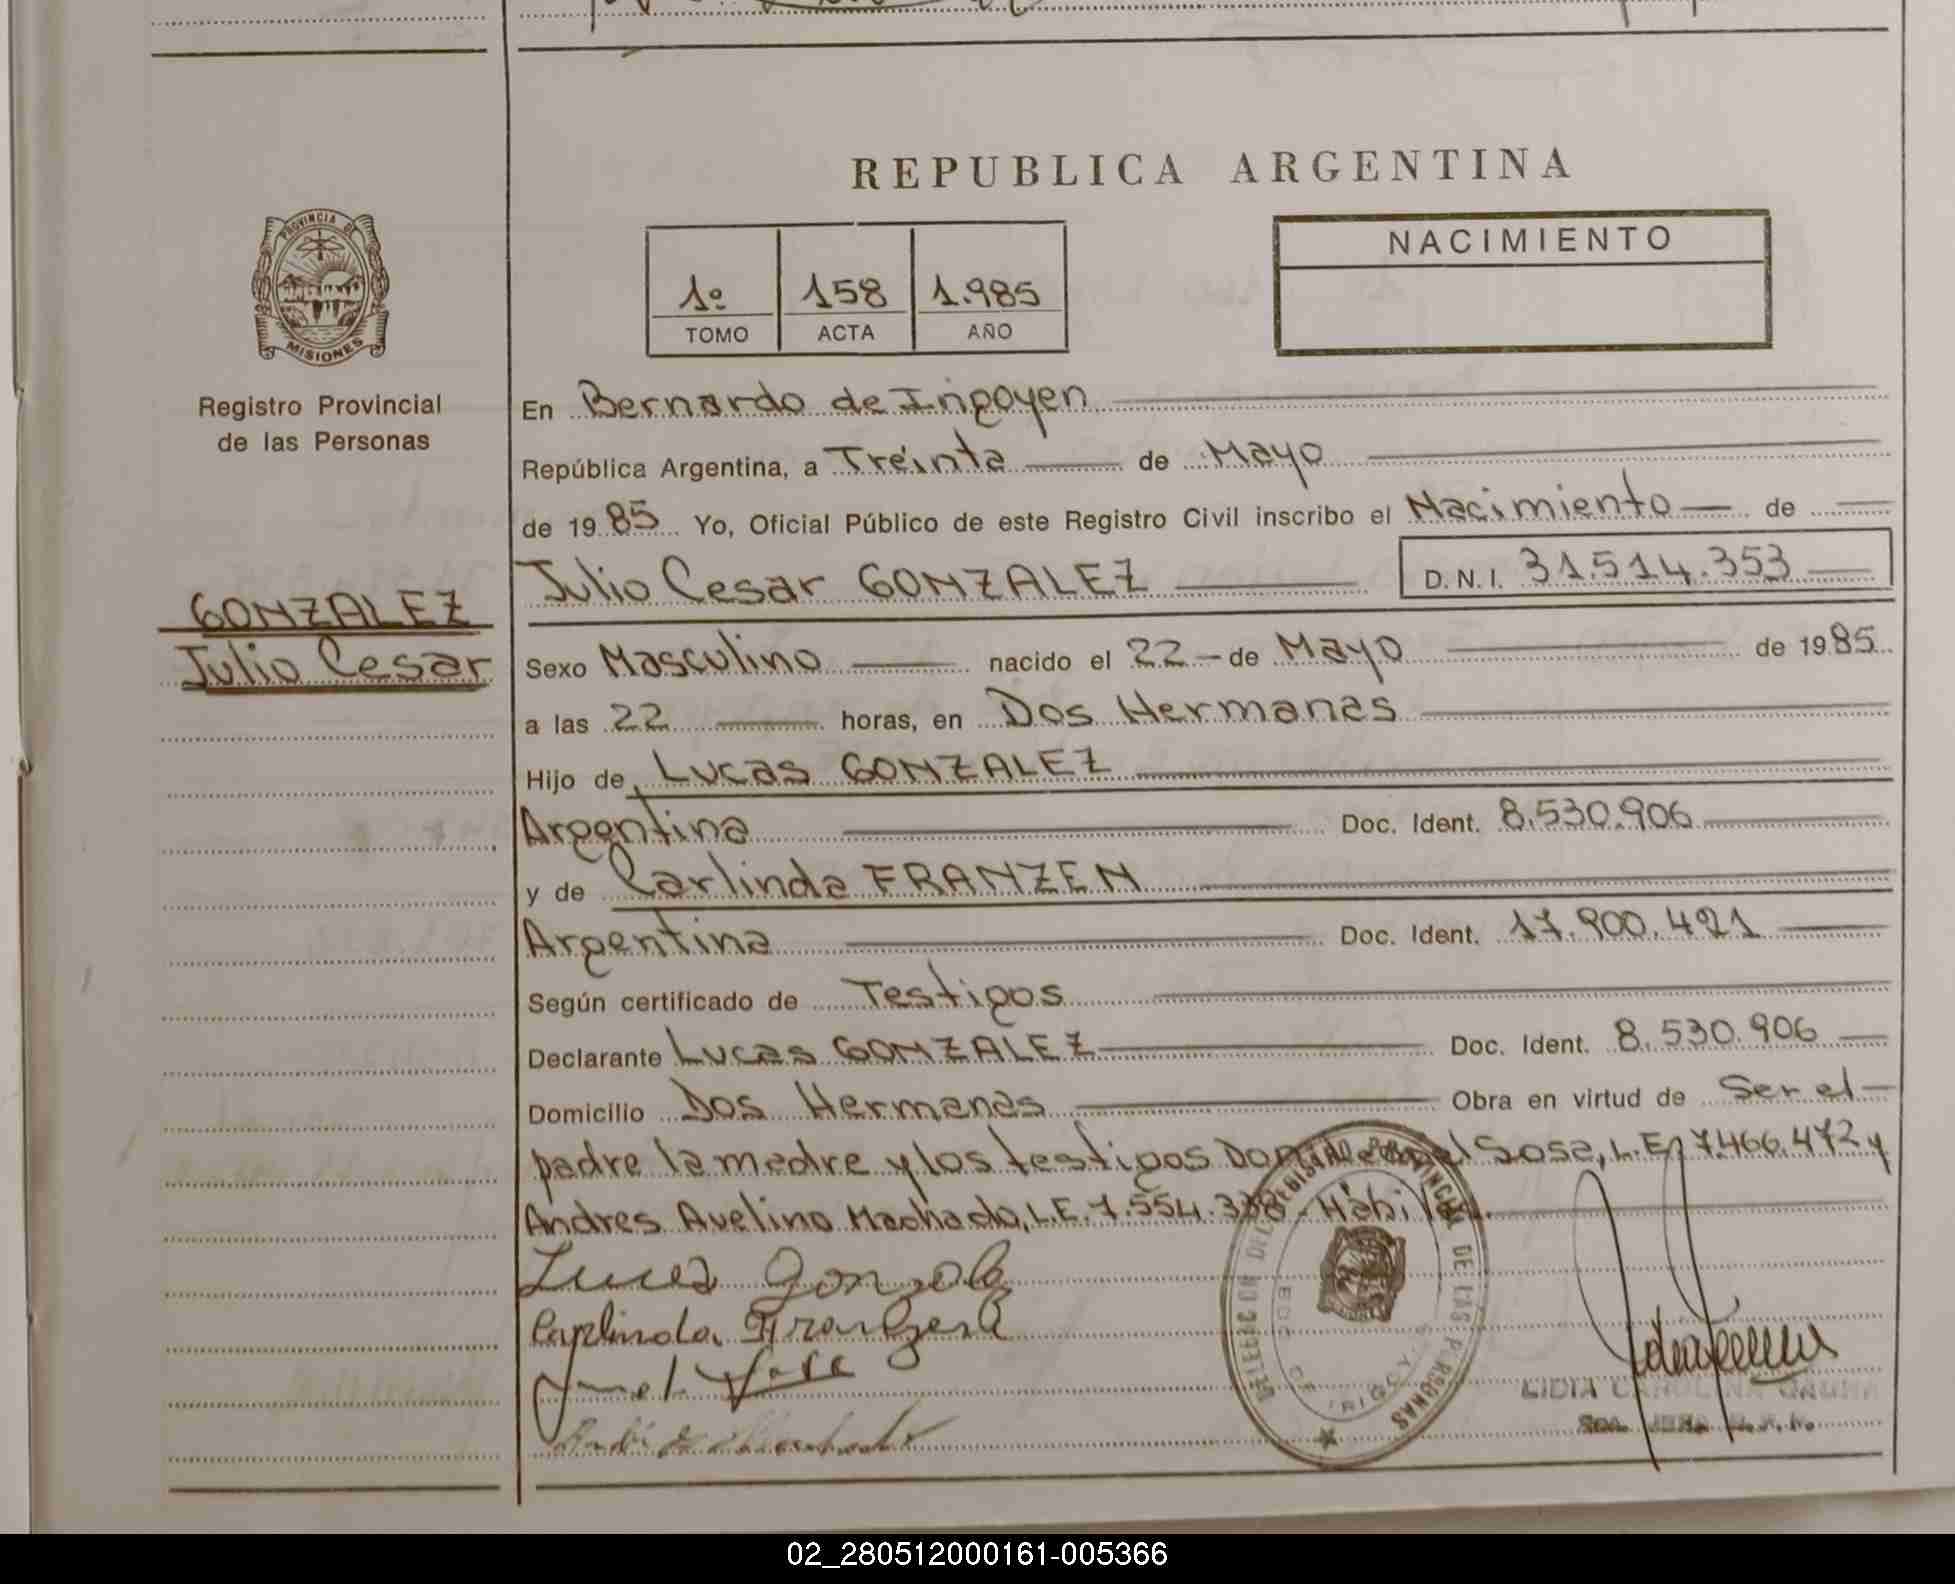 REPUBLICA ARGENTINA
PROVINCIA DE
MISIONES
Registro Provincial
de las Personas
GONZALEZ
Julio Cesar
1º 158 1.985
TOMO ACTA AÑO
NACIMIENTO
En Bernardo de Irigoyen
República Argentina, a Treinta de Mayo
de 1985 Yo, Oficial Público de este Registro Civil inscribo el Nacimiento de
Julio Cesar GONZALEZ D.N.I. 31.514.353
Sexo Masculino nacido el 22 de Mayo de 1985
a las 22 horas, en Dos Hermanas
Hijo de Lucas GONZALEZ
Argentina Doc. Ident. 8.530.906
y de Carlinda FRANZEN
Argentina Doc. Ident. 17.900.421
Según certificado de Testigos
Declarante Lucas GONZALEZ Doc. Ident. 8.530.906
Domicilio Dos Hermanas Obra en virtud de Ser el
padre la madre y los testigos Don Sosa, L.E. 7.466.472 y
Andres Avelino Machado, L.E. 7.554.338 - Hábiles.
Lucas Gonzalez
Carlinda Franzen
DELEGACION DEL REGISTRO PROVINCIAL DE LAS PERSONAS
LIDIA CAROLINA
02_280512000161-005366